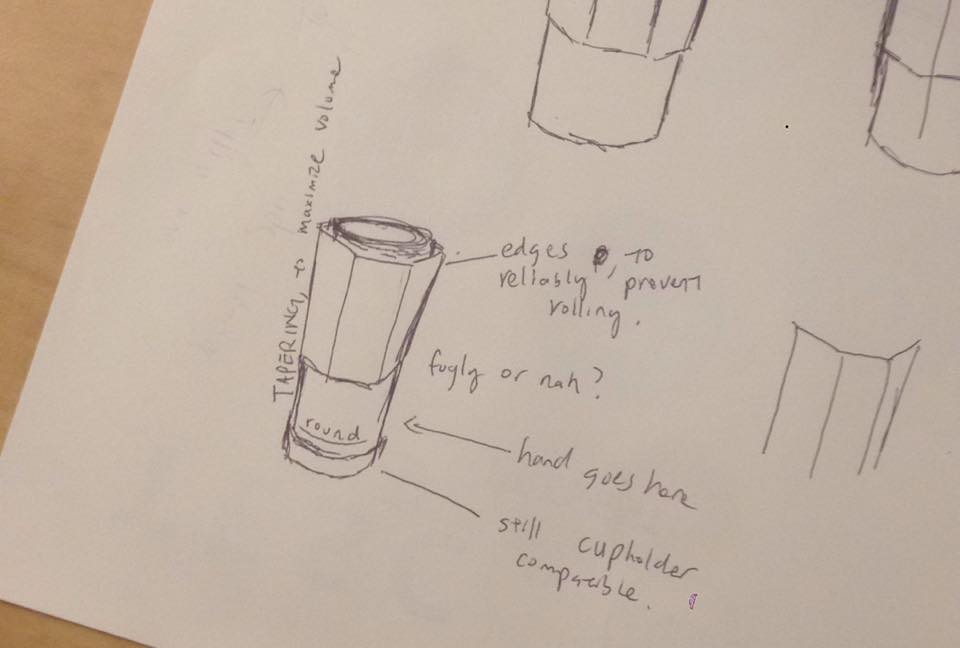 TAPERING, to maximize volume
edges, TO
reliably prevent
rolling.
fugly or nah?
round
hand goes here
still cupholder
compatible.